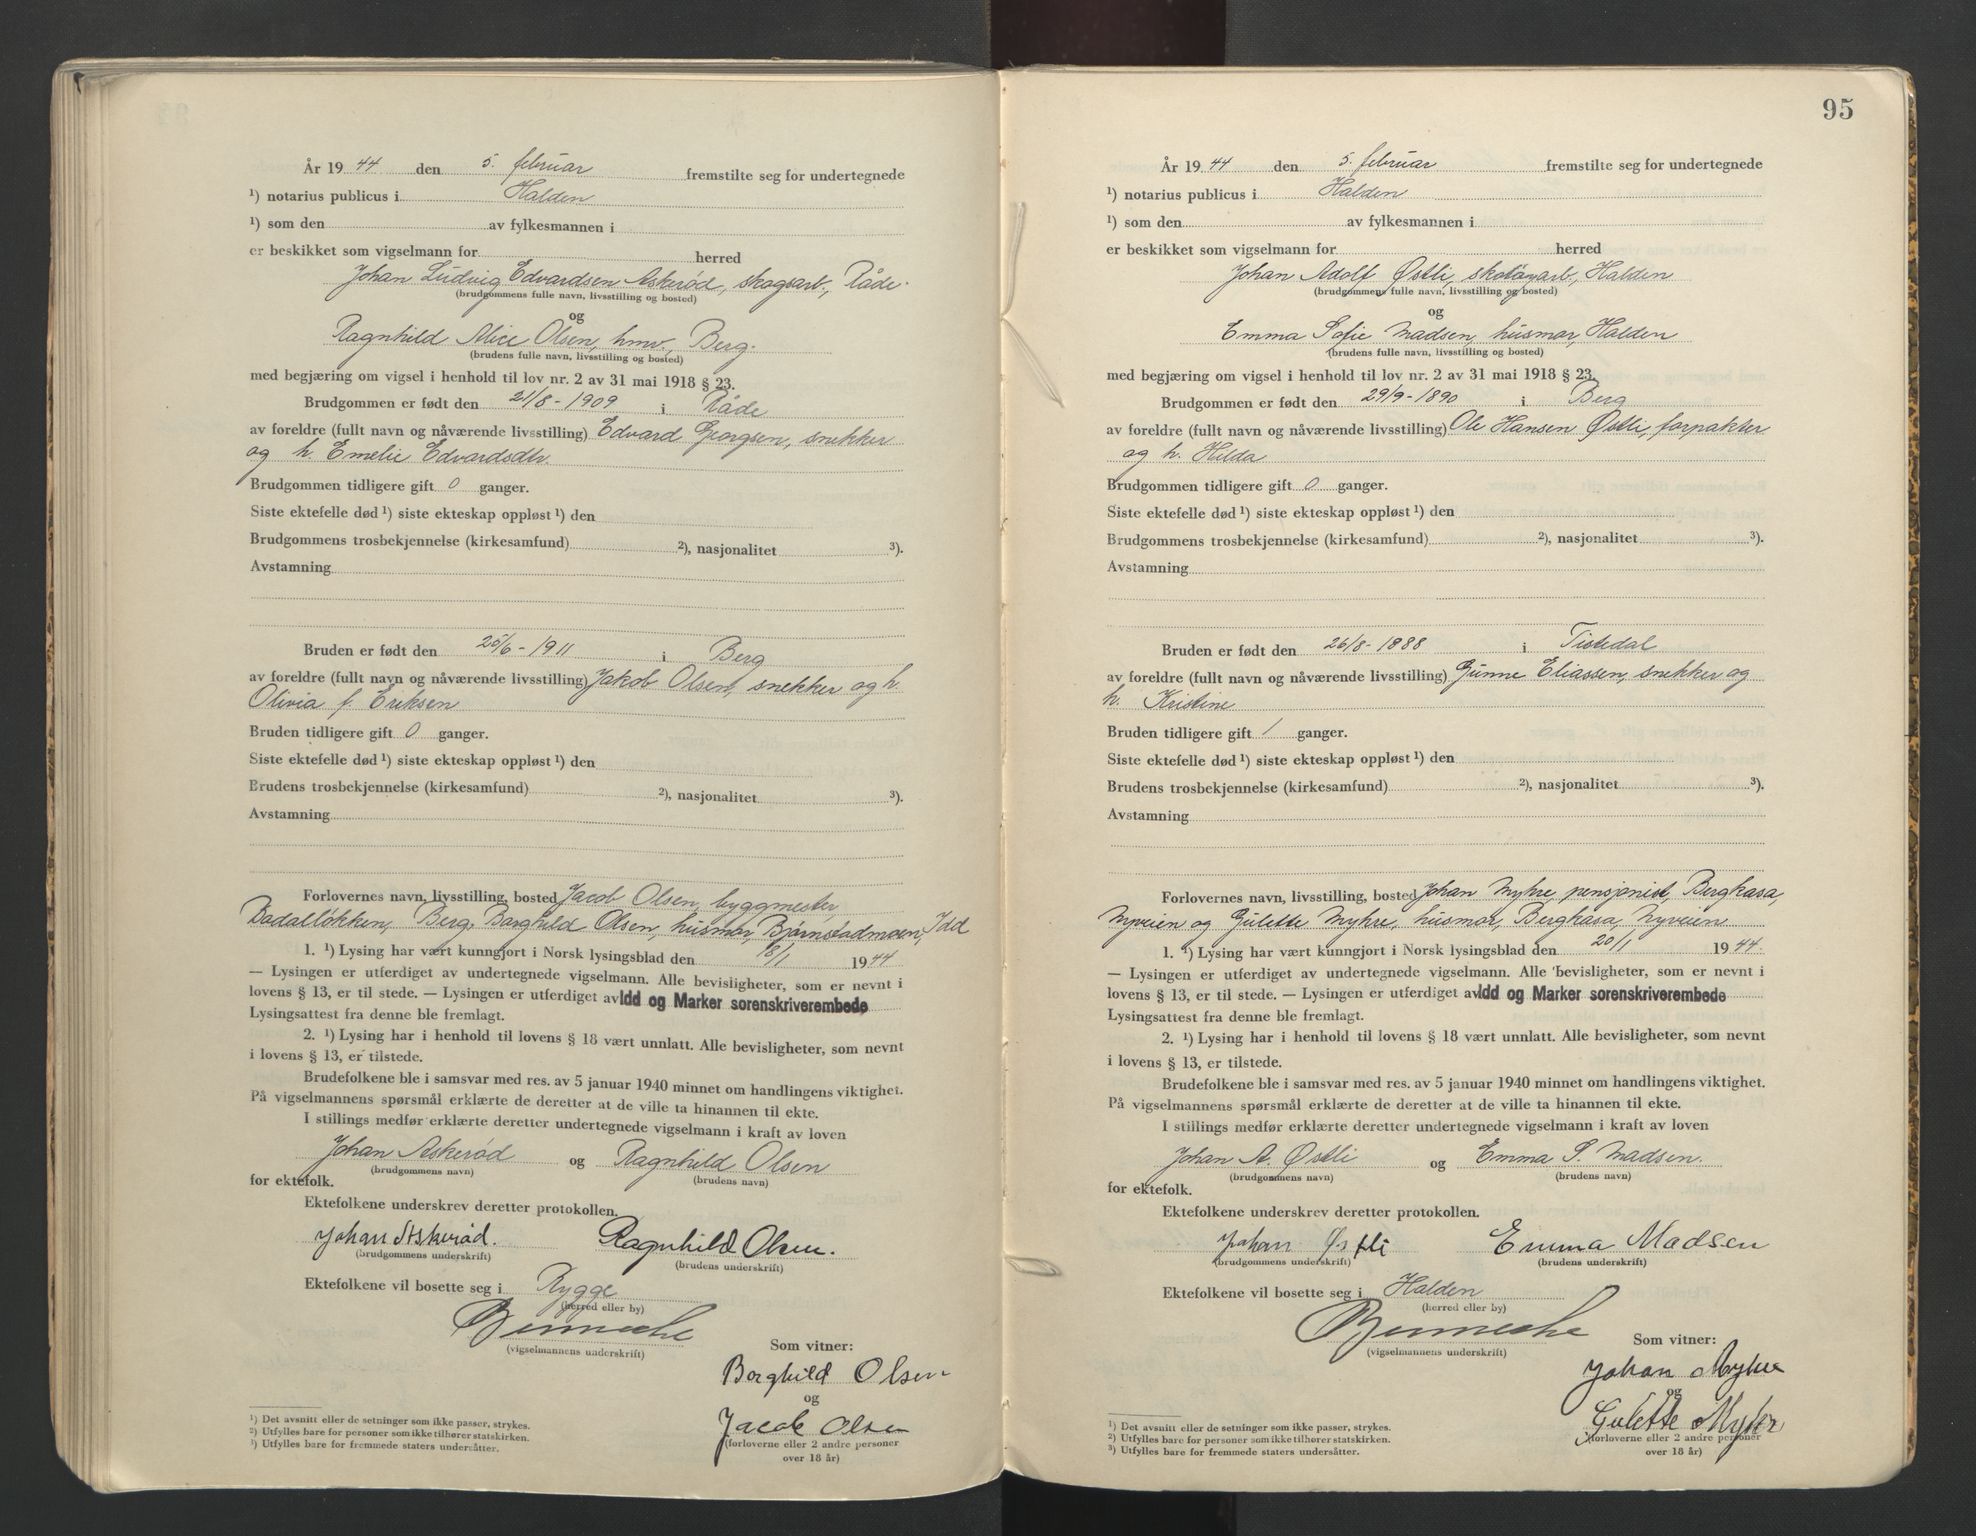 År 19 44 den 5. februar fremstilte seg for undertegnede
¹) notarius publicus i Halden
¹) som den av fylkesmannen i
er beskikket som vigselmann for herred
Johan Ludvig Edvardsen Askerød, skogsarb., Råde.
(brudgommens fulle navn, livsstilling og bosted)
og
Ragnhild Alice Olsen, hmv., Berg.
(brudens fulle navn, livsstilling og bosted)
med begjæring om vigsel i henhold til lov nr. 2 av 31 mai 1918 § 23.
Brudgommen er født den 21/8-1909 i Råde
av foreldre (fullt navn og nåværende livsstilling) Edvard Georgsen, snekker
og h. Emelie Edvardsdtr.
Brudgommen tidligere gift 0 ganger.
Siste ektefelle død ¹) siste ekteskap oppløst ¹) den
Brudgommens trosbekjennelse (kirkesamfund) ²), nasjonalitet ³).
Avstamning
Bruden er født den 25/6-1911 i Berg
av foreldre (fullt navn og nåværende livsstilling) Jakob Olsen, snekker og h.
Olivia f. Eriksen
Bruden tidligere gift 0 ganger.
Siste ektefelle død ¹) siste ekteskap oppløst ¹) den
Brudens trosbekjennelse (kirkesamfund) ²), nasjonalitet ³).
Avstamning
Forlovernes navn, livsstilling, bosted Jacob Olsen, byggmester,
Berg, Borghild Olsen, husmor, Bjørnstadmoen, Idd
1. ¹) Lysing har vært kunngjort i Norsk lysingsblad den 18/1 19 44.
— Lysingen er utferdiget av undertegnede vigselmann. Alle bevisligheter, som er nevnt i
lovens § 13, er til stede. — Lysingen er utferdiget av Idd og Marker sorenskriverembede
Lysingsattest fra denne ble fremlagt.
2. ¹) Lysing har i henhold til lovens § 18 vært unnlatt. Alle bevisligheter, som nevnt
i lovens § 13, er tilstede.
Brudefolkene ble i samsvar med res. av 5 januar 1940 minnet om handlingens viktighet.
På vigselmannens spørsmål erklærte de deretter at de ville ta hinannen til ekte.
I stillings medfør erklærte deretter undertegnede vigselmann i kraft av loven
Johan Askerød og Ragnhild Olsen
(brudgommens navn) (brudens navn)
for ektefolk.
Ektefolkene underskrev deretter protokollen.
Johan Askerød. Ragnhild Olsen.
(brudgommens underskrift) (brudens underskrift)
Ektefolkene vil bosette seg i Rygge
(herred eller by)
(vigselmannens underskrift)
Som vitner:
Borghild Olsen
og
Jacob Olsen
(forloverne eller 2 andre personer
over 18 år)
¹) Det avsnitt eller de setninger som ikke passer, strykes.
²) Utfylles bare for personer som ikke tilhører statskirken.
³) Utfylles bare for fremmede staters undersåtter.
95
År 19 44 den 5. februar fremstilte seg for undertegnede
¹) notarius publicus i Halden
¹) som den av fylkesmannen i
er beskikket som vigselmann for herred
Johan Adolf Østli, skotøyarb., Halden
(brudgommens fulle navn, livsstilling og bosted)
og
Emma Sofie Madsen, husmor, Halden
(brudens fulle navn, livsstilling og bosted)
med begjæring om vigsel i henhold til lov nr. 2 av 31 mai 1918 § 23.
Brudgommen er født den 29/9-1890 i Berg
av foreldre (fullt navn og nåværende livsstilling) Ole Hansen Østli, forpakter
og h. Hilda
Brudgommen tidligere gift 0 ganger.
Siste ektefelle død ¹) siste ekteskap oppløst ¹) den
Brudgommens trosbekjennelse (kirkesamfund) ²), nasjonalitet ³).
Avstamning
Bruden er født den 26/8-1888 i Tistedal
av foreldre (fullt navn og nåværende livsstilling) Gunne Eliassen, snekker og
h. Kristine
Bruden tidligere gift 1 ganger.
Siste ektefelle død ¹) siste ekteskap oppløst ¹) den
Brudens trosbekjennelse (kirkesamfund) ²), nasjonalitet ³).
Avstamning
Forlovernes navn, livsstilling, bosted Johan Myhre, pensjonist, Bergkasa,
Nyveien og Gulette Myhre, husmor, Bergkasa, Nyveien
1. ¹) Lysing har vært kunngjort i Norsk lysingsblad den 20/1 19 44.
— Lysingen er utferdiget av undertegnede vigselmann. Alle bevisligheter, som er nevnt i
lovens § 13, er til stede. — Lysingen er utferdiget av Idd og Marker sorenskriverembede
Lysingsattest fra denne ble fremlagt.
2. ¹) Lysing har i henhold til lovens § 18 vært unnlatt. Alle bevisligheter, som nevnt
i lovens § 13, er tilstede.
Brudefolkene ble i samsvar med res. av 5 januar 1940 minnet om handlingens viktighet.
På vigselmannens spørsmål erklærte de deretter at de ville ta hinannen til ekte.
I stillings medfør erklærte deretter undertegnede vigselmann i kraft av loven
Johan A. Østli og Emma S. Madsen.
(brudgommens navn) (brudens navn)
for ektefolk.
Ektefolkene underskrev deretter protokollen.
Johan Østli Emma Madsen
(brudgommens underskrift) (brudens underskrift)
Ektefolkene vil bosette seg i Halden
(herred eller by)
(vigselmannens underskrift)
Som vitner:
Johan Myhre
og
Gulette Myhre
(forloverne eller 2 andre personer
over 18 år)
¹) Det avsnitt eller de setninger som ikke passer, strykes.
²) Utfylles bare for personer som ikke tilhører statskirken.
³) Utfylles bare for fremmede staters undersåtter.